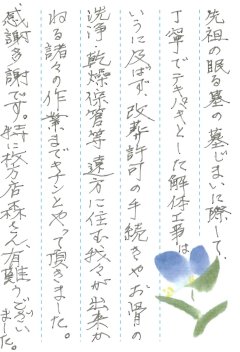 先祖の眠る墓の墓じまいに際して、
丁寧でテキパキとした解体工事は
いうに及ばず、改葬許可の手続きやお骨の
洗浄、乾燥保管等、遠方に住む我々が出来か
ねる諸々の作業までキチンとやって頂きました。
感謝多謝です。特に枚方店森さん、有難うござい
ました。